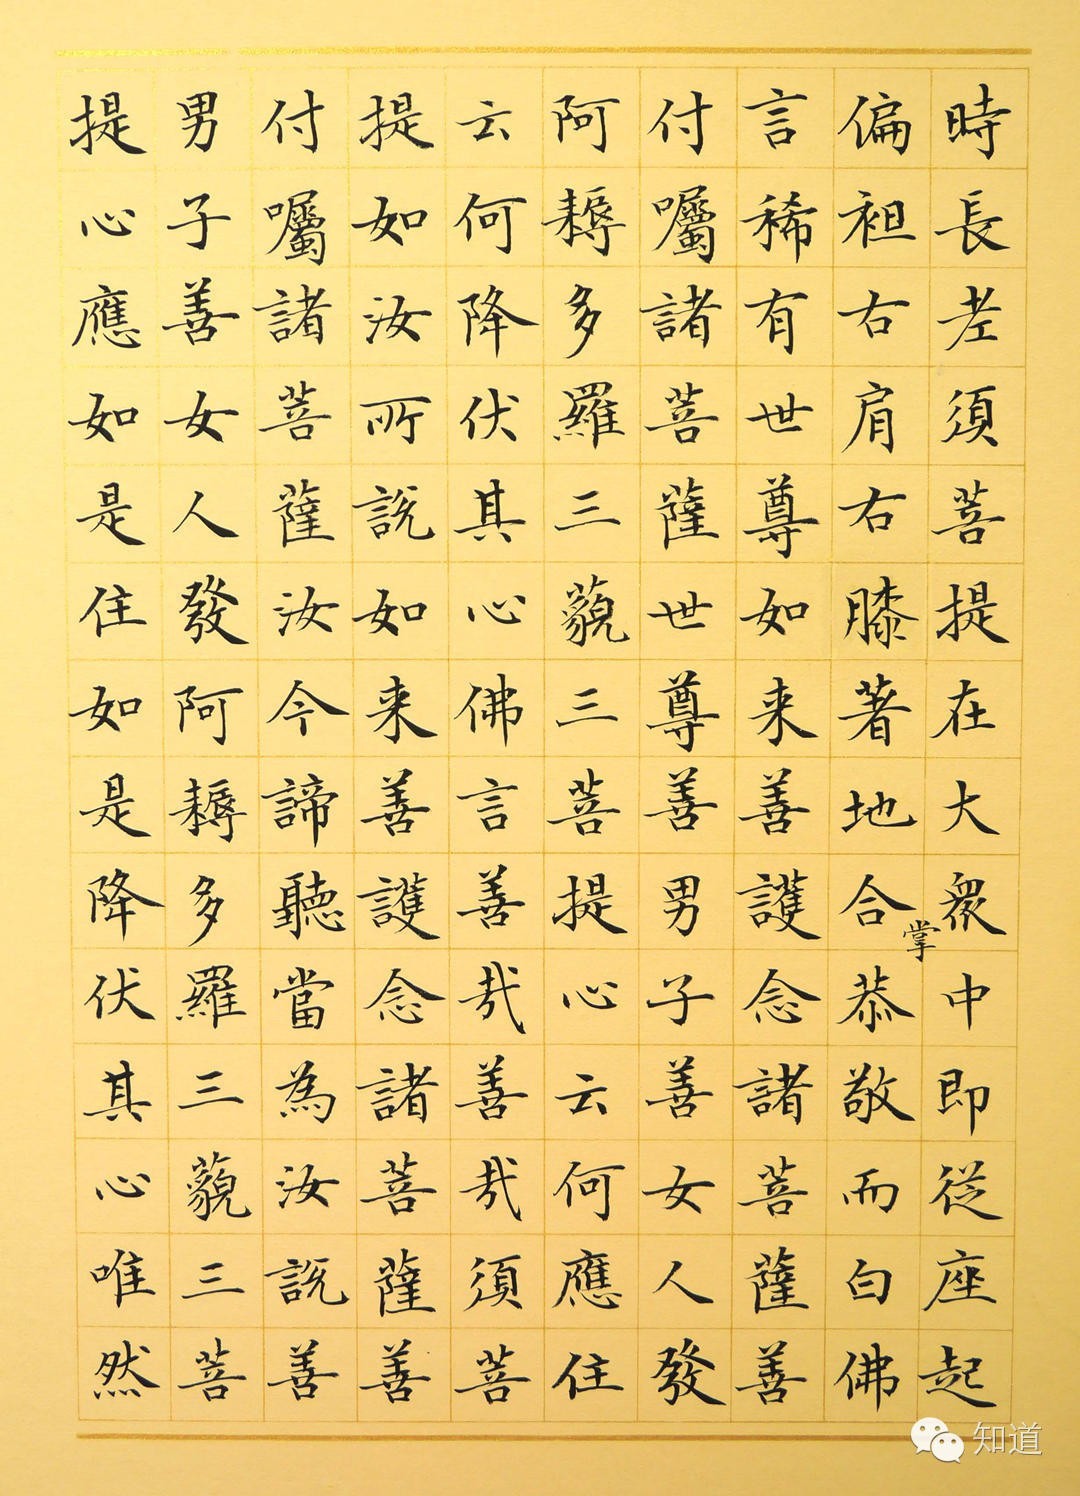 時長老須菩提在大衆中即從座起
偏袒右肩右膝著地合掌恭敬而白佛
言稀有世尊如来善護念諸菩薩善
付囑諸菩薩世尊善男子善女人發
阿耨多羅三藐三菩提心云何應住
云何降伏其心佛言善哉善哉須菩
提如汝所說如来善護念諸菩薩善
付囑諸菩薩汝今諦聽當為汝說善
男子善女人發阿耨多羅三藐三菩
提心應如是住如是降伏其心唯然
知道